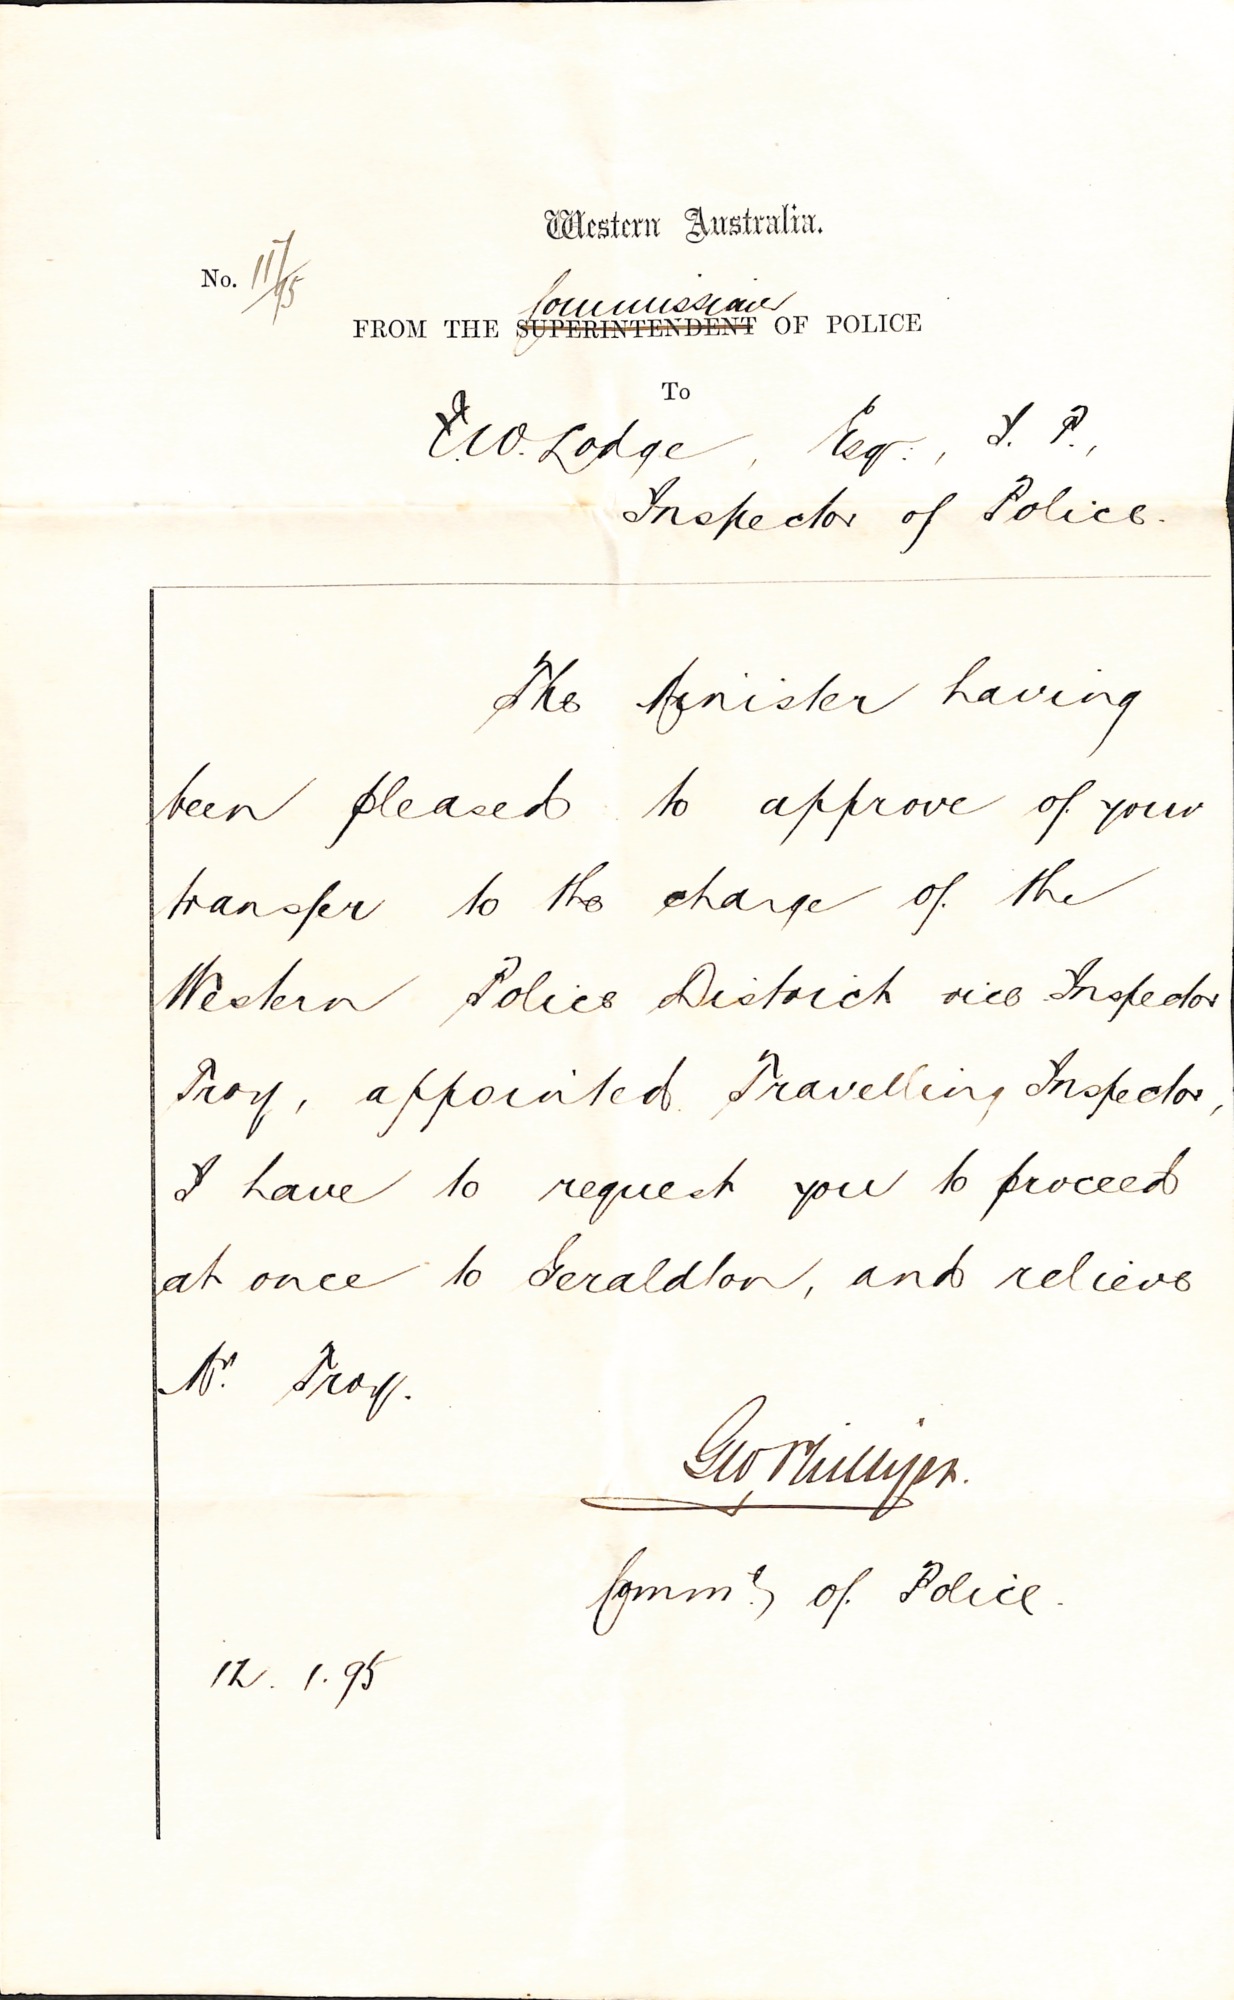 Western Australia.
No. 117/95
Commissioner
FROM THE SUPERINTENDENT OF POLICE
To
F.W. Lodge, Esqr., J. P.,
Inspector of Police.
The Minister having
been pleased to approve of your
transfer to the charge of the
Western Police District vice Inspector
Troy, appointed Travelling Inspector,
I have to request you to proceed
at once to Geraldton, and relieve
Mr. Troy.
Geo Phillips.
Commr. of Police.
12. 1. 95